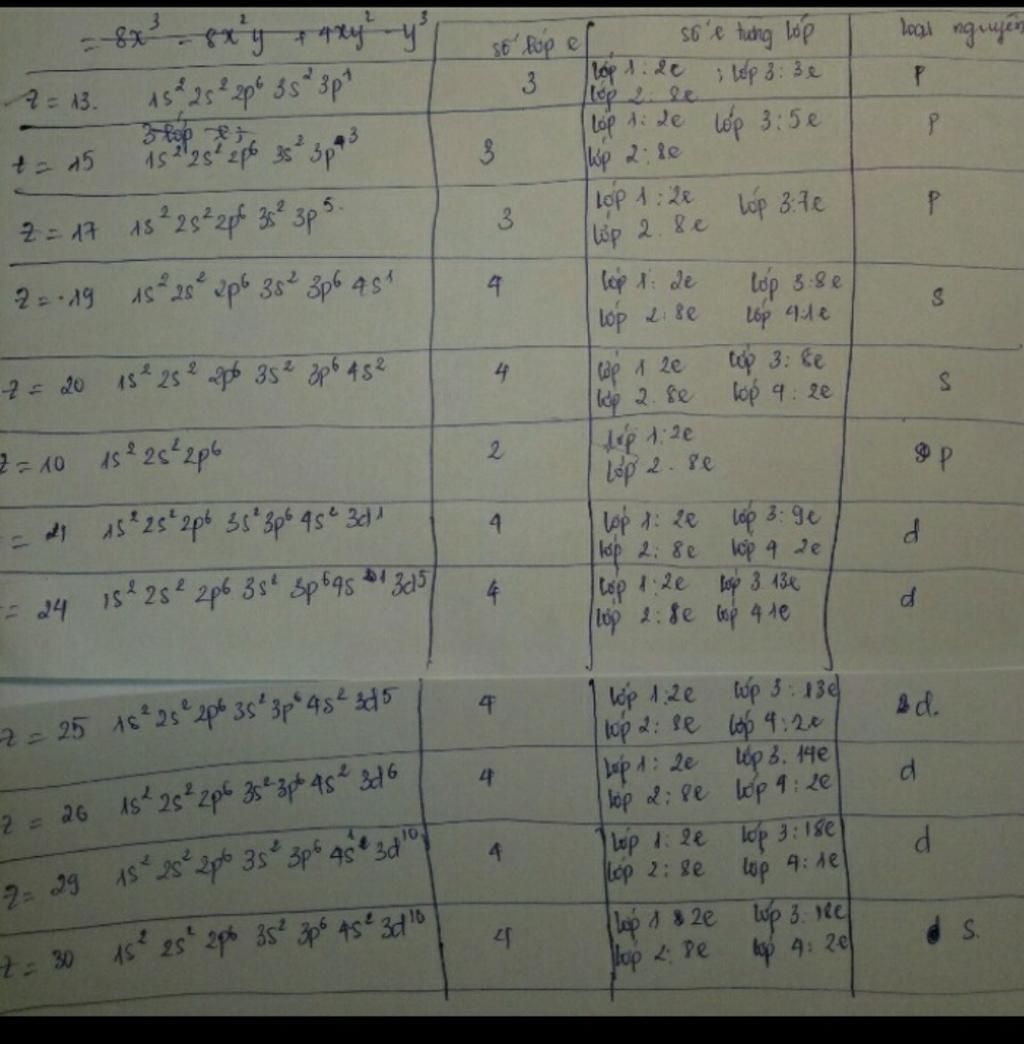 = 8x³ - 8x²y + 4xy² - y³
số lớp e số e từng lớp loại nguyên
Z = 13. 1s² 2s² 2p⁶ 3s² 3p¹ 3 lớp 1: 2e ; lớp 3: 3e p
lớp 2: 8e
3 lớp e
Z = 15 1s² 2s² 2p⁶ 3s² 3p³ 3 lớp 1: 2e lớp 3: 5e p
lớp 2: 8e
Z = 17 1s² 2s² 2p⁶ 3s² 3p⁵ 3 lớp 1: 2e lớp 3: 7e p
lớp 2. 8e
Z = 19 1s² 2s² 2p⁶ 3s² 3p⁶ 4s¹ 4 lớp 1: 2e lớp 3: 8e s
lớp 2: 8e lớp 4: 1e
Z = 20 1s² 2s² 2p⁶ 3s² 3p⁶ 4s² 4 lớp 1 2e lớp 3: 8e s
lớp 2. 8e lớp 4: 2e
Z = 10 1s² 2s² 2p⁶ 2 lớp 1: 2e p
lớp 2. 8e
= 21 1s² 2s² 2p⁶ 3s² 3p⁶ 4s² 3d¹ 4 lớp 1: 2e lớp 3: 9e d
lớp 2: 8e lớp 4 2e
= 24 1s² 2s² 2p⁶ 3s² 3p⁶ 4s¹ 3d⁵ 4 lớp 1: 2e lớp 3. 13e d
lớp 2: 8e lớp 4 1e
Z = 25 1s² 2s² 2p⁶ 3s² 3p⁶ 4s² 3d⁵ 4 lớp 1: 2e lớp 3: 13e d.
lớp 2: 8e lớp 4: 2e
Z = 26 1s² 2s² 2p⁶ 3s² 3p⁶ 4s² 3d⁶ 4 lớp 1: 2e lớp 3. 14e d
lớp 2: 8e lớp 4: 2e
Z = 29 1s² 2s² 2p⁶ 3s² 3p⁶ 4s¹ 3d¹⁰ 4 lớp 1: 2e lớp 3: 18e d
lớp 2: 8e lớp 4: 1e
Z = 30 1s² 2s² 2p⁶ 3s² 3p⁶ 4s² 3d¹⁰ 4 lớp 1 2e lớp 3. 18e s.
lớp 2: 8e lớp 4: 2e